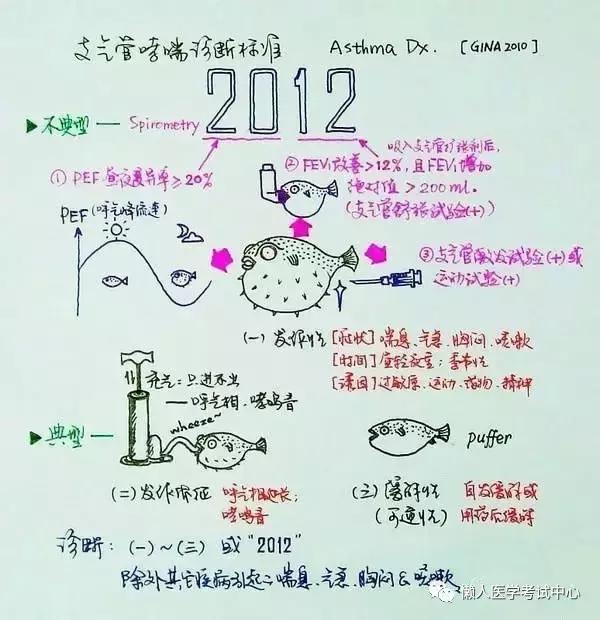 支气管哮喘诊断标准 Asthma Dx. [GINA2010]
2012
▶不典型— Spirometry
吸入支气管扩张剂后,
① PEF昼夜变异率≥20%
② FEV₁改善>12%,且FEV₁增加
绝对值>200ml.
(支气管舒张试验(+))
PEF(呼气峰流速)
③支气管激发试验(+)或
运动试验(+)
(一)发作性[症状]喘息、气急、胸闷、咳嗽
[时间]昼轻夜重;季节性
[诱因]过敏原、运动、药物、精神
充气:只进不出
—呼气相、哮鸣音
wheeze~
▶典型—
puffer
(二)发作体征 呼气相延长;
哮鸣音
(三)缓解性 自发缓解或
(可逆性) 用药后缓解
诊断:(一)~(三) 或"2012"
除外其它疾病引起之喘息、气急、胸闷&咳嗽
懒人医学考试中心